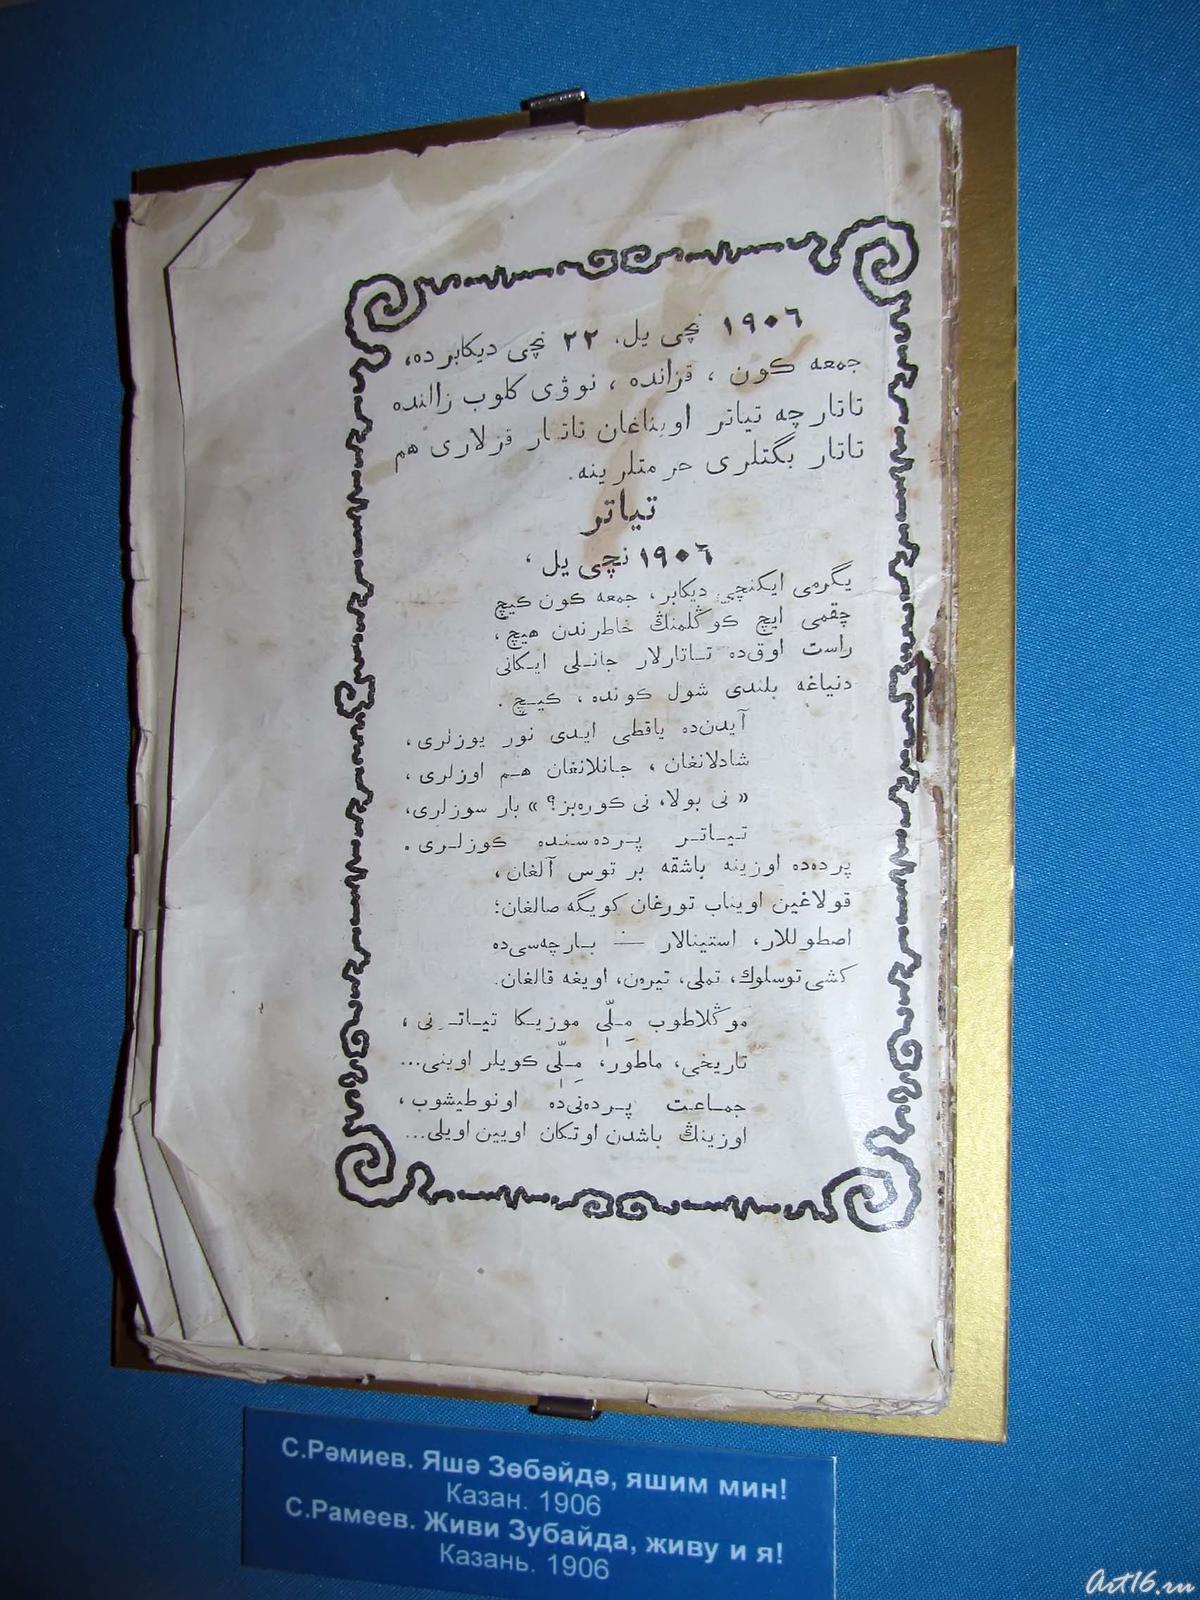 ١٩٠٦ نچی یل، ٢٢ نچی دیکابر ده،
جمعه کون ، قزانده ، نوۋی کلوب زالنده
تاتار چه تیاتر اویناغان تاتار قزلاری هم
تاتار یگتلری حرمتلرینه.
تیاتر
١٩٠٦ نچی یل ،
یگرمی ایکنچی دیکابر، جمعه کون کیچ
چقمی ایچ کوڭلمنڭ خاطرندن هیچ،
راست اوق‌ده تاتارلار جانلی ایکانی
دنیاغه بلندی شول کونده ، کیچ .
آیدن‌ده یاقطی ایدی نور یوزلری،
شادلانغان ، جانلانغان هم اوزلری ،
« نی بولا، نی کوره‌بز؟ » بار سوزلری،
تیاتر پرده‌سنده کوزلری .
پرده‌ده اوزینه باشقه بر توس آلغان،
قولاغین اویناب تورغان کویگه صالغان؛
اصطوللار، استینالار — بارچه‌سی‌ده
کشی توسلوك، تملی، تیرەن، اویغه قالغان.
موڭلاطوب مِلّی موزیکا تیاترنی ،
تاریخی، ماطور، مِلّی کویلر اوینی...
جماعت پرده‌نی‌ده اونوطیشوب ،
اوزینڭ باشدن اوتکان اویین اویلی...
С.Рәмиев. Яшә Зөбәйдә, яшим мин!
Казан. 1906
С.Рамеев. Живи Зубайда, живу и я!
Казань. 1906
Art16.ru